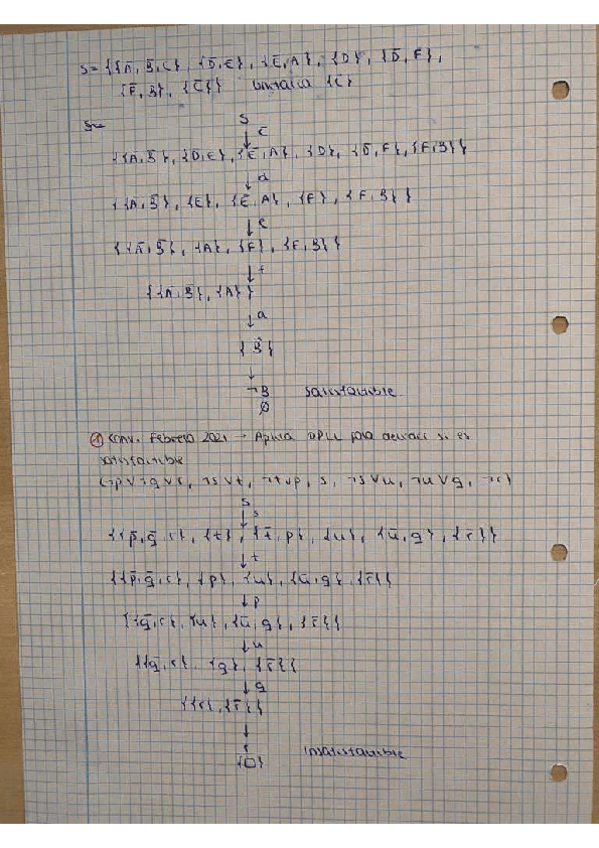 S = {{Ā, B̄, C}, {D̄, E}, {Ē, A}, {D}, {D̄, F},
{F̄, B̄}, {C̄}} unitaria {C̄}
S
↓ C
{{Ā, B̄}, {D̄, E}, {Ē, A}, {D}, {D̄, F}, {F̄, B̄}}
↓ d
{{Ā, B̄}, {E}, {Ē, A}, {F}, {F, B̄}}
↓ e
{{Ā, B̄}, {A}, {F}, {F, B̄}}
↓ f
{{Ā, B̄}, {A}}
↓ a
{B̄}
↓
¬B Satisfacible
∅
① Conv. Febrero 2021 → Aplica DPLL para decidir si es
satisfacible
(¬p∨¬q∨r, ¬s∨t, ¬t∨p, s, ¬s∨u, ¬u∨q, ¬r)
S
↓ s
{{p̄, q̄, r}, {t}, {t̄, p}, {u}, {ū, q}, {r̄}}
↓ t
{{p̄, q̄, r}, {p}, {u}, {ū, q}, {r̄}}
↓ p
{{q̄, r}, {u}, {ū, q}, {r̄}}
↓ u
{{q̄, r}, {q}, {r̄}}
↓ q
{{r}, {r̄}}
↓
r
{□} Insatisfacible